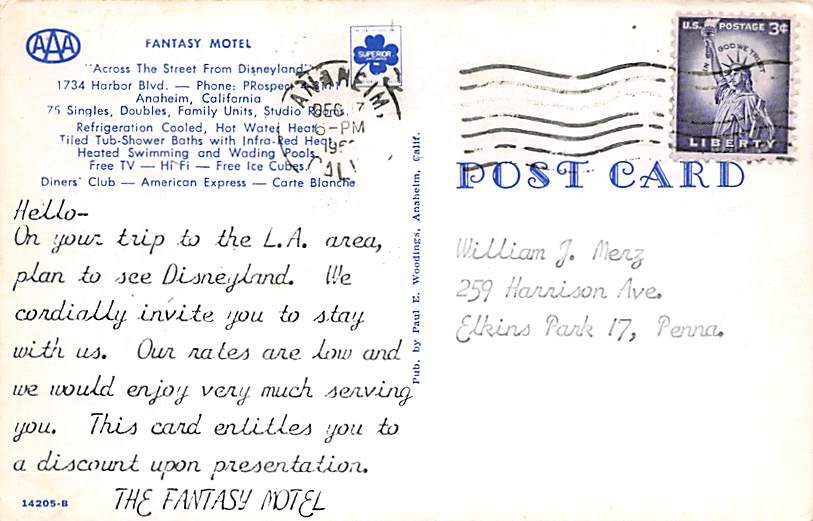 AAA
FANTASY MOTEL
SUPERIOR
"Across The Street From Disneyland"
1734 Harbor Blvd. — Phone:
Anaheim, California
75 Singles, Doubles, Family Units, Studio Rooms.
Refrigeration Cooled, Hot Water Heat
Tiled Tub-Shower Baths with Infra-Red Heat
Heated Swimming and Wading Pools
Free TV — Hi Fi — Free Ice Cubes
Diners' Club — American Express — Carte Blanche
ANAHEIM,
DEC 17
6-PM
CALIF
U.S. POSTAGE 3¢
IN GOD WE TRUST
LIBERTY
POST CARD
Hello-
On your trip to the L.A. area,
plan to see Disneyland. We
cordially invite you to stay
with us. Our rates are low and
we would enjoy very much serving
you. This card entitles you to
a discount upon presentation.
THE FANTASY MOTEL
14205-B
Pub. by Paul E. Woodings, Anaheim, Calif.
William J. Merz
259 Harrison Ave.
Elkins Park 17, Penna.